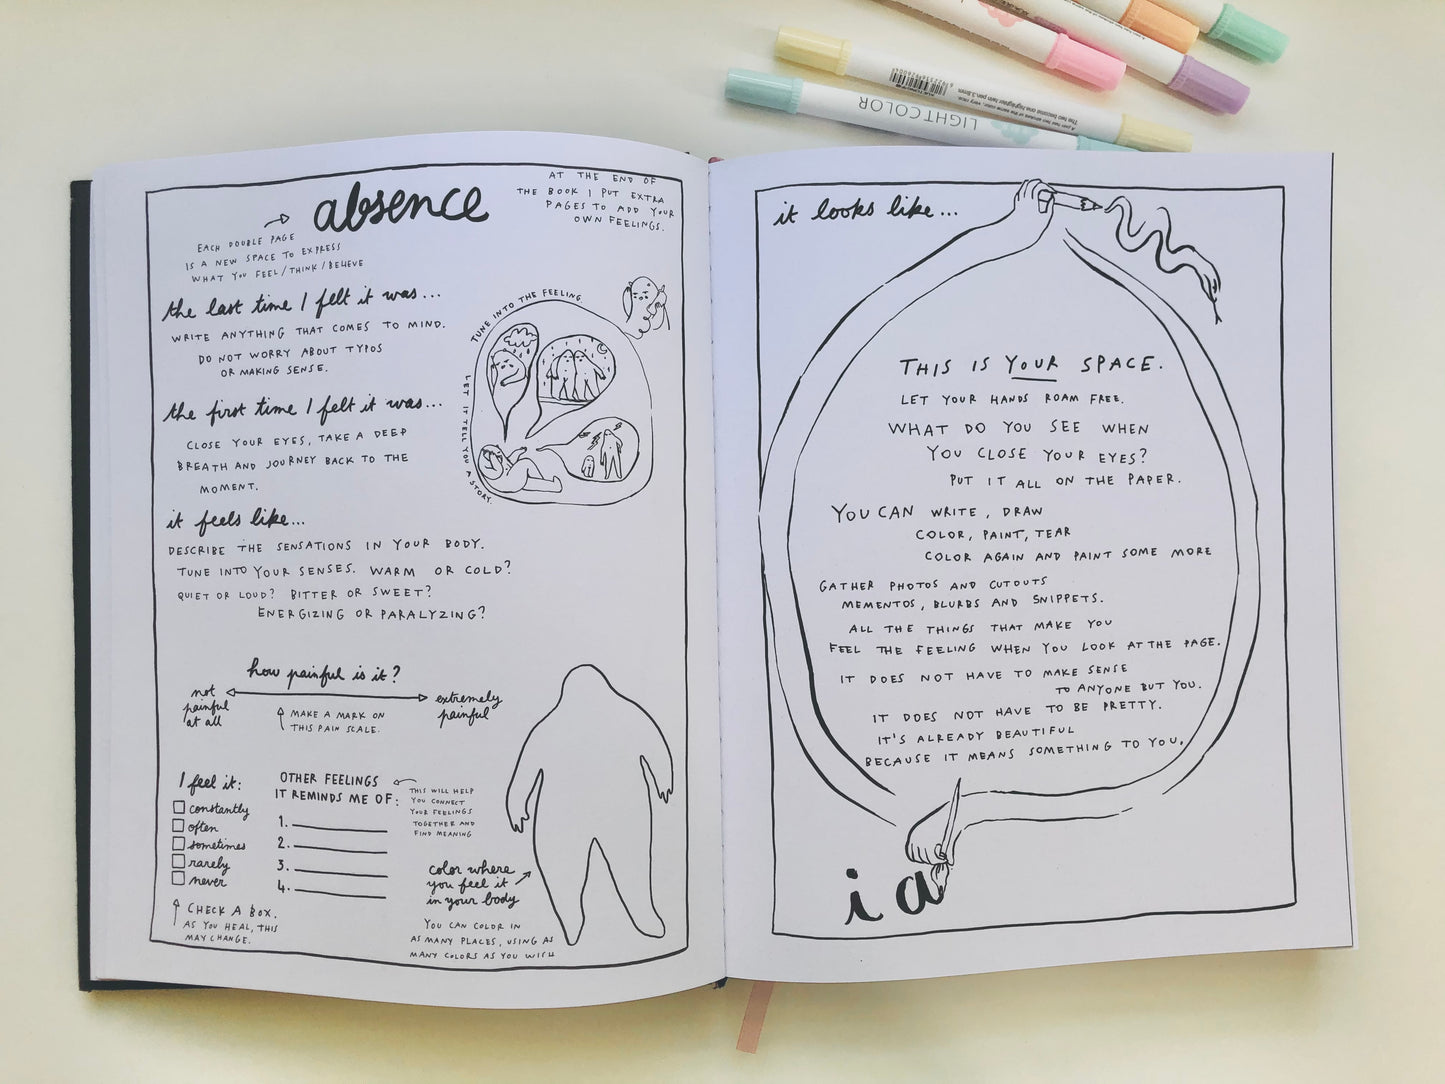 absence
AT THE END OF
THE BOOK I PUT EXTRA
PAGES TO ADD YOUR
OWN FEELINGS.
EACH DOUBLE PAGE
IS A NEW SPACE TO EXPRESS
WHAT YOU FEEL/THINK/BELIEVE
the last time I felt it was...
WRITE ANYTHING THAT COMES TO MIND.
DO NOT WORRY ABOUT TYPOS
OR MAKING SENSE.
the first time I felt it was...
CLOSE YOUR EYES, TAKE A DEEP
BREATH AND JOURNEY BACK TO THE
MOMENT.
TUNE INTO THE FEELING
LET IT TELL YOU A STORY.
it feels like...
DESCRIBE THE SENSATIONS IN YOUR BODY.
TUNE INTO YOUR SENSES. WARM OR COLD?
QUIET OR LOUD? BITTER OR SWEET?
ENERGIZING OR PARALYZING?
how painful is it?
not
painful
at all
extremely
painful
MAKE A MARK ON
THIS PAIN SCALE.
I feel it:
constantly
often
sometimes
rarely
never
CHECK A BOX.
AS YOU HEAL, THIS
MAY CHANGE.
OTHER FEELINGS
IT REMINDS ME OF:
1.
2.
3.
4.
THIS WILL HELP
YOU CONNECT
YOUR FEELINGS
TOGETHER AND
FIND MEANING
color where
you feel it
in your body
YOU CAN COLOR IN
AS MANY PLACES, USING AS
MANY COLORS AS YOU WISH
it looks like...
THIS IS YOUR SPACE.
LET YOUR HANDS ROAM FREE.
WHAT DO YOU SEE WHEN
YOU CLOSE YOUR EYES?
PUT IT ALL ON THE PAPER.
YOU CAN WRITE, DRAW
COLOR, PAINT, TEAR
COLOR AGAIN AND PAINT SOME MORE
GATHER PHOTOS AND CUTOUTS
MEMENTOS, BLURBS AND SNIPPETS.
ALL THE THINGS THAT MAKE YOU
FEEL THE FEELING WHEN YOU LOOK AT THE PAGE.
IT DOES NOT HAVE TO MAKE SENSE
TO ANYONE BUT YOU.
IT DOES NOT HAVE TO BE PRETTY.
IT'S ALREADY BEAUTIFUL
BECAUSE IT MEANS SOMETHING TO YOU.
i a
LIGHTCOLOR